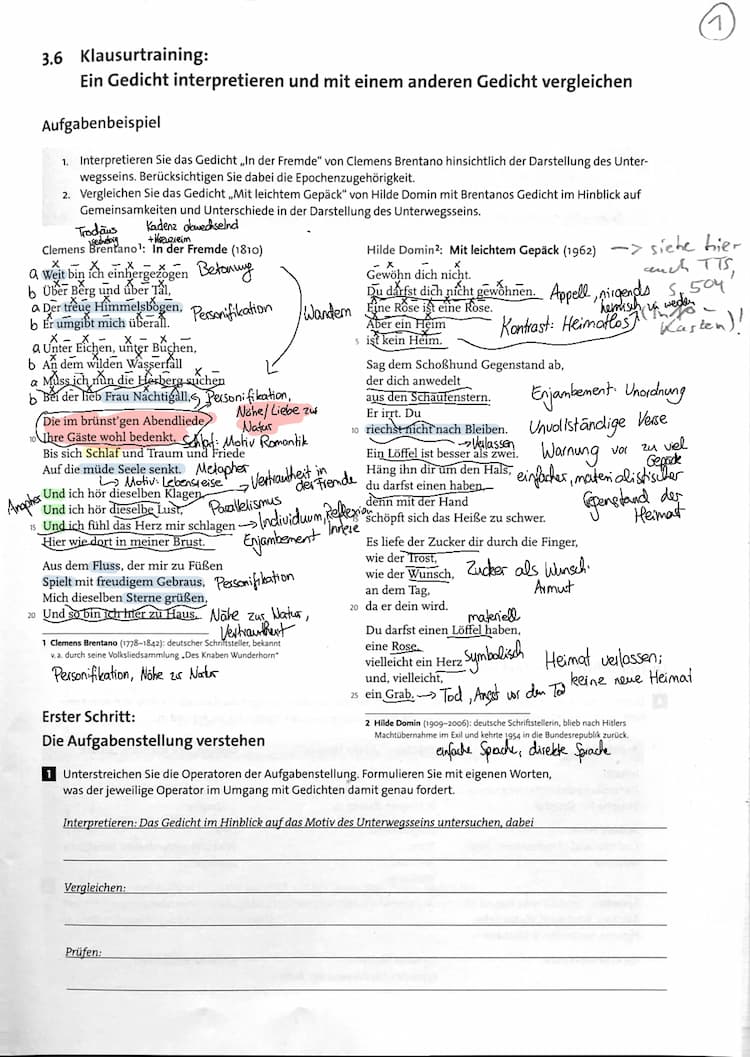 1
3.6 Klausurtraining:
Ein Gedicht interpretieren und mit einem anderen Gedicht vergleichen
Aufgabenbeispiel
1. Interpretieren Sie das Gedicht „In der Fremde“ von Clemens Brentano hinsichtlich der Darstellung des Unter-
wegsseins. Berücksichtigen Sie dabei die Epochenzugehörigkeit.
2. Vergleichen Sie das Gedicht „Mit leichtem Gepäck“ von Hilde Domin mit Brentanos Gedicht im Hinblick auf
Gemeinsamkeiten und Unterschiede in der Darstellung des Unterwegsseins.
Trochäus
Kadenz abwechselnd
+ Kreuzreim
Clemens Brentano¹: In der Fremde (1810)
a Weit bin ich einhergezogen Betonung
b Über Berg und über Tal,
a Der treue Himmelsbogen, Personifikation
b Er umgibt mich überall.
Wandern
a Unter Eichen, unter Buchen,
b An dem wilden Wasserfall
a Muss ich nun die Herberg suchen
b Bei der lieb Frau Nachtigall, Personifikation,
Nähe/Liebe zur
Natur
Die im brünst'gen Abendliede
10 Ihre Gäste wohl bedenkt. Schlaf: Motiv Romantik
Bis sich Schlaf und Traum und Friede
Auf die müde Seele senkt. Metapher
→ Motiv: Lebensreise → Vertrautheit in
der Fremde
Anapher Und ich hör dieselben Klagen,
Und ich hör dieselbe Lust, Parallelismus
15 Und ich fühl das Herz mir schlagen → Individuum, Reflexion
Innere
Hier wie dort in meiner Brust. Enjambement
Aus dem Fluss, der mir zu Füßen
Spielt mit freudigem Gebraus, Personifikation
Mich dieselben Sterne grüßen,
20 Und so bin ich hier zu Haus. Nähe zur Natur,
Vertrautheit
1 Clemens Brentano (1778–1842): deutscher Schriftsteller, bekannt
v. a. durch seine Volksliedsammlung „Des Knaben Wunderhorn“
Personifikation, Nähe zur Natur
Hilde Domin²: Mit leichtem Gepäck (1962) → siehe hier
auch TTS,
S. 504
(Info-
Kasten)!
Gewöhn dich nicht.
Du darfst dich nicht gewöhnen. Appell, nirgends
heimisch zu werden
Eine Rose ist eine Rose.
Aber ein Heim Kontrast: Heimatlos
5 ist kein Heim.
Sag dem Schoßhund Gegenstand ab,
der dich anwedelt
aus den Schaufenstern. Enjambement: Unordnung
Er irrt. Du
10 riechst nicht nach Bleiben. Unvollständige Verse
→ Verlassen
Ein Löffel ist besser als zwei. Warnung vor zu viel
Gepäck
Häng ihn dir um den Hals, einfacher, materialistischer
du darfst einen haben, Gegenstand der
Heimat
denn mit der Hand
15 schöpft sich das Heiße zu schwer.
Es liefe der Zucker dir durch die Finger,
wie der Trost,
wie der Wunsch, Zucker als Wunsch.
an dem Tag, Armut
20 da er dein wird.
materiell
Du darfst einen Löffel haben,
eine Rose,
vielleicht ein Herz symbolisch
und, vielleicht,
25 ein Grab. → Tod, Angst vor dem Tod
Heimat verlassen;
keine neue Heimat
2 Hilde Domin (1909–2006): deutsche Schriftstellerin, blieb nach Hitlers
Machtübernahme im Exil und kehrte 1954 in die Bundesrepublik zurück.
einfache Sprache, direkte Sprache
Erster Schritt:
Die Aufgabenstellung verstehen
1 Unterstreichen Sie die Operatoren der Aufgabenstellung. Formulieren Sie mit eigenen Worten,
was der jeweilige Operator im Umgang mit Gedichten damit genau fordert.
Interpretieren: Das Gedicht im Hinblick auf das Motiv des Unterwegsseins untersuchen, dabei
Vergleichen:
Prüfen: